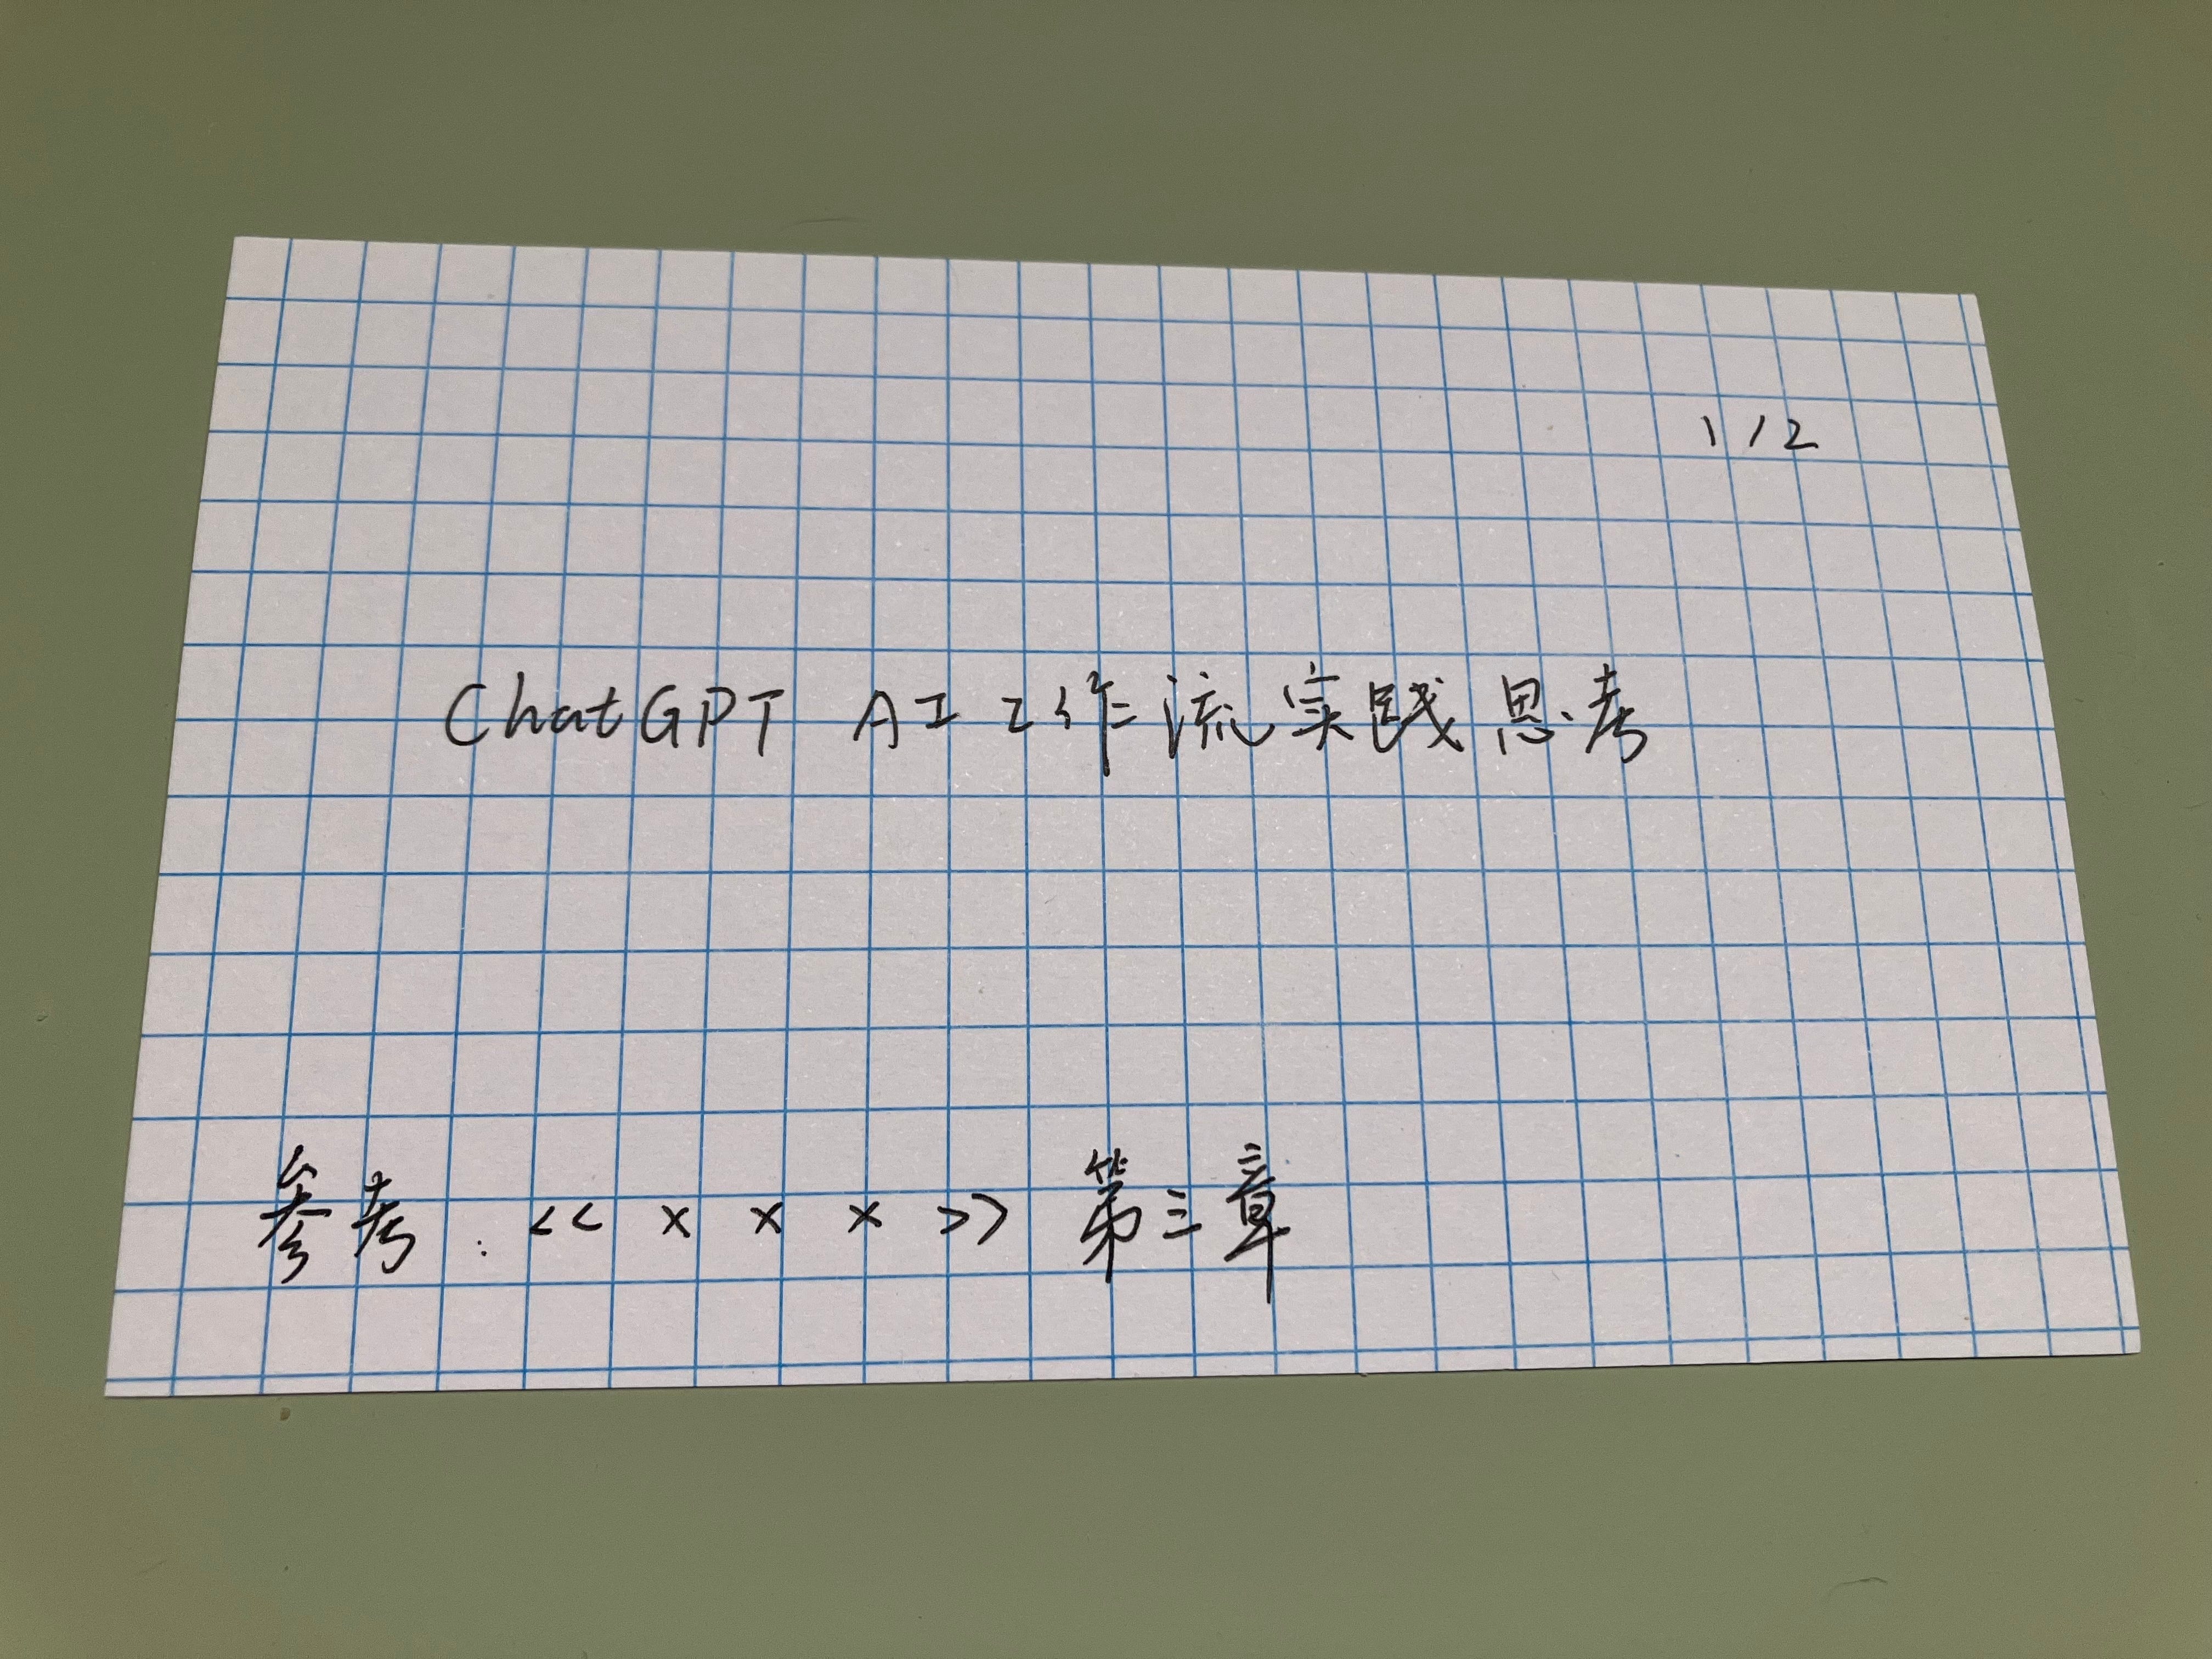 1/2
ChatGPT AI 工作流实践思考
参考：<<×××>> 第三章